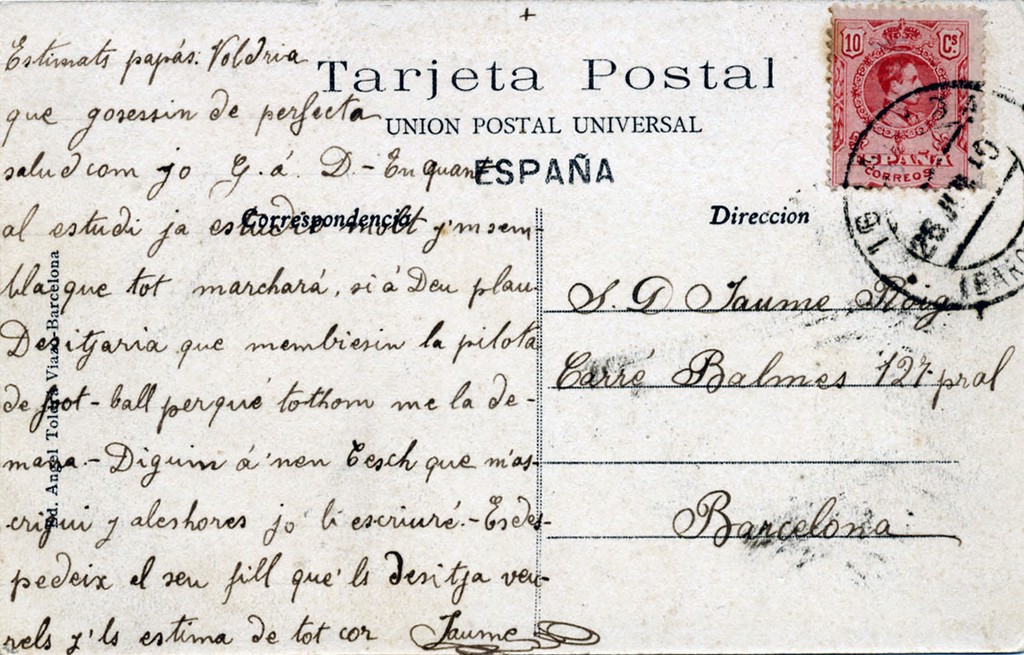 Estimats papás: Voldria
que gosessin de perfecta
salud com jo G. á. D. - En quant
al estudi ja estudio molt y'm sem-
bla que tot marchará, si á Deu plau
Desitjaria que m'embiesin la pilota
de foot-ball perqué tothom me la de-
mana. - Diguin á'n en Cesch que m'as-
crigui y aleshores jo li escriuré. - Es des-
pedeix el seu fill que'ls desitja veu-
rels y'ls estima de tot cor Jaume
Tarjeta Postal
UNION POSTAL UNIVERSAL
ESPAÑA
Correspondencia
Direccion
S. D Jaume Roig
Carré Balmes 127 pral
Barcelona
Ed. Angel Toldrá Viazo-Barcelona
10 Cs
ESPAÑA
CORREOS